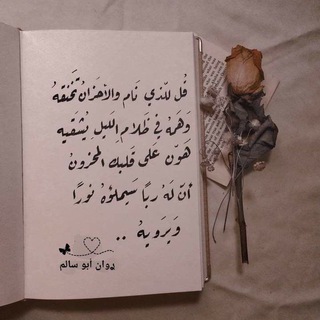 قُل للّذي نَام والأحزانُ تَخنقهُ
وَهمهُ في ظَلامِ الليلِ يُشقيهِ
هَوّن على قلبك المحزونُ
أنّ لَهُ ربًا سَيملؤهُ نُورًا
وَيَرويهُ ..
روان ابو سالم